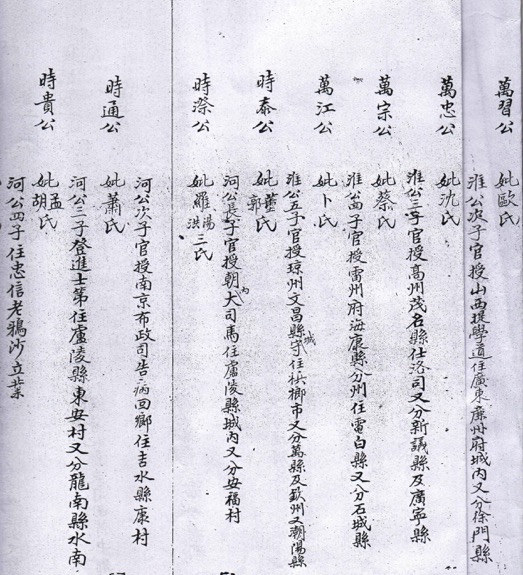 萬習公 妣歐氏
淮公次子官授山西提學道住廣東廉州府城內又分徐門縣
萬忠公 妣沈氏
淮公三子官授高州茂名縣仕洛司又分新議縣及廣寧縣
萬宗公 妣蔡氏
淮公四子官授雷州府海康縣分州住電白縣又分石城縣
萬江公 妣卜氏
淮公五子官授琼州文昌縣城守住梹榔市又分萬縣及欽州又朝陽縣
時泰公 妣董郭氏
河公長子官授朝內大司馬住廬陵縣城內又分安福村
時漈公 妣羅湯洪三氏
河公次子官授南京布政司告病回鄉住吉水縣康村
時通公 妣蕭氏
河公三子登進士第住廬陵縣東安村又分龍南縣水南
時貴公 妣孟胡氏
河公四子住忠信老鴉沙立業